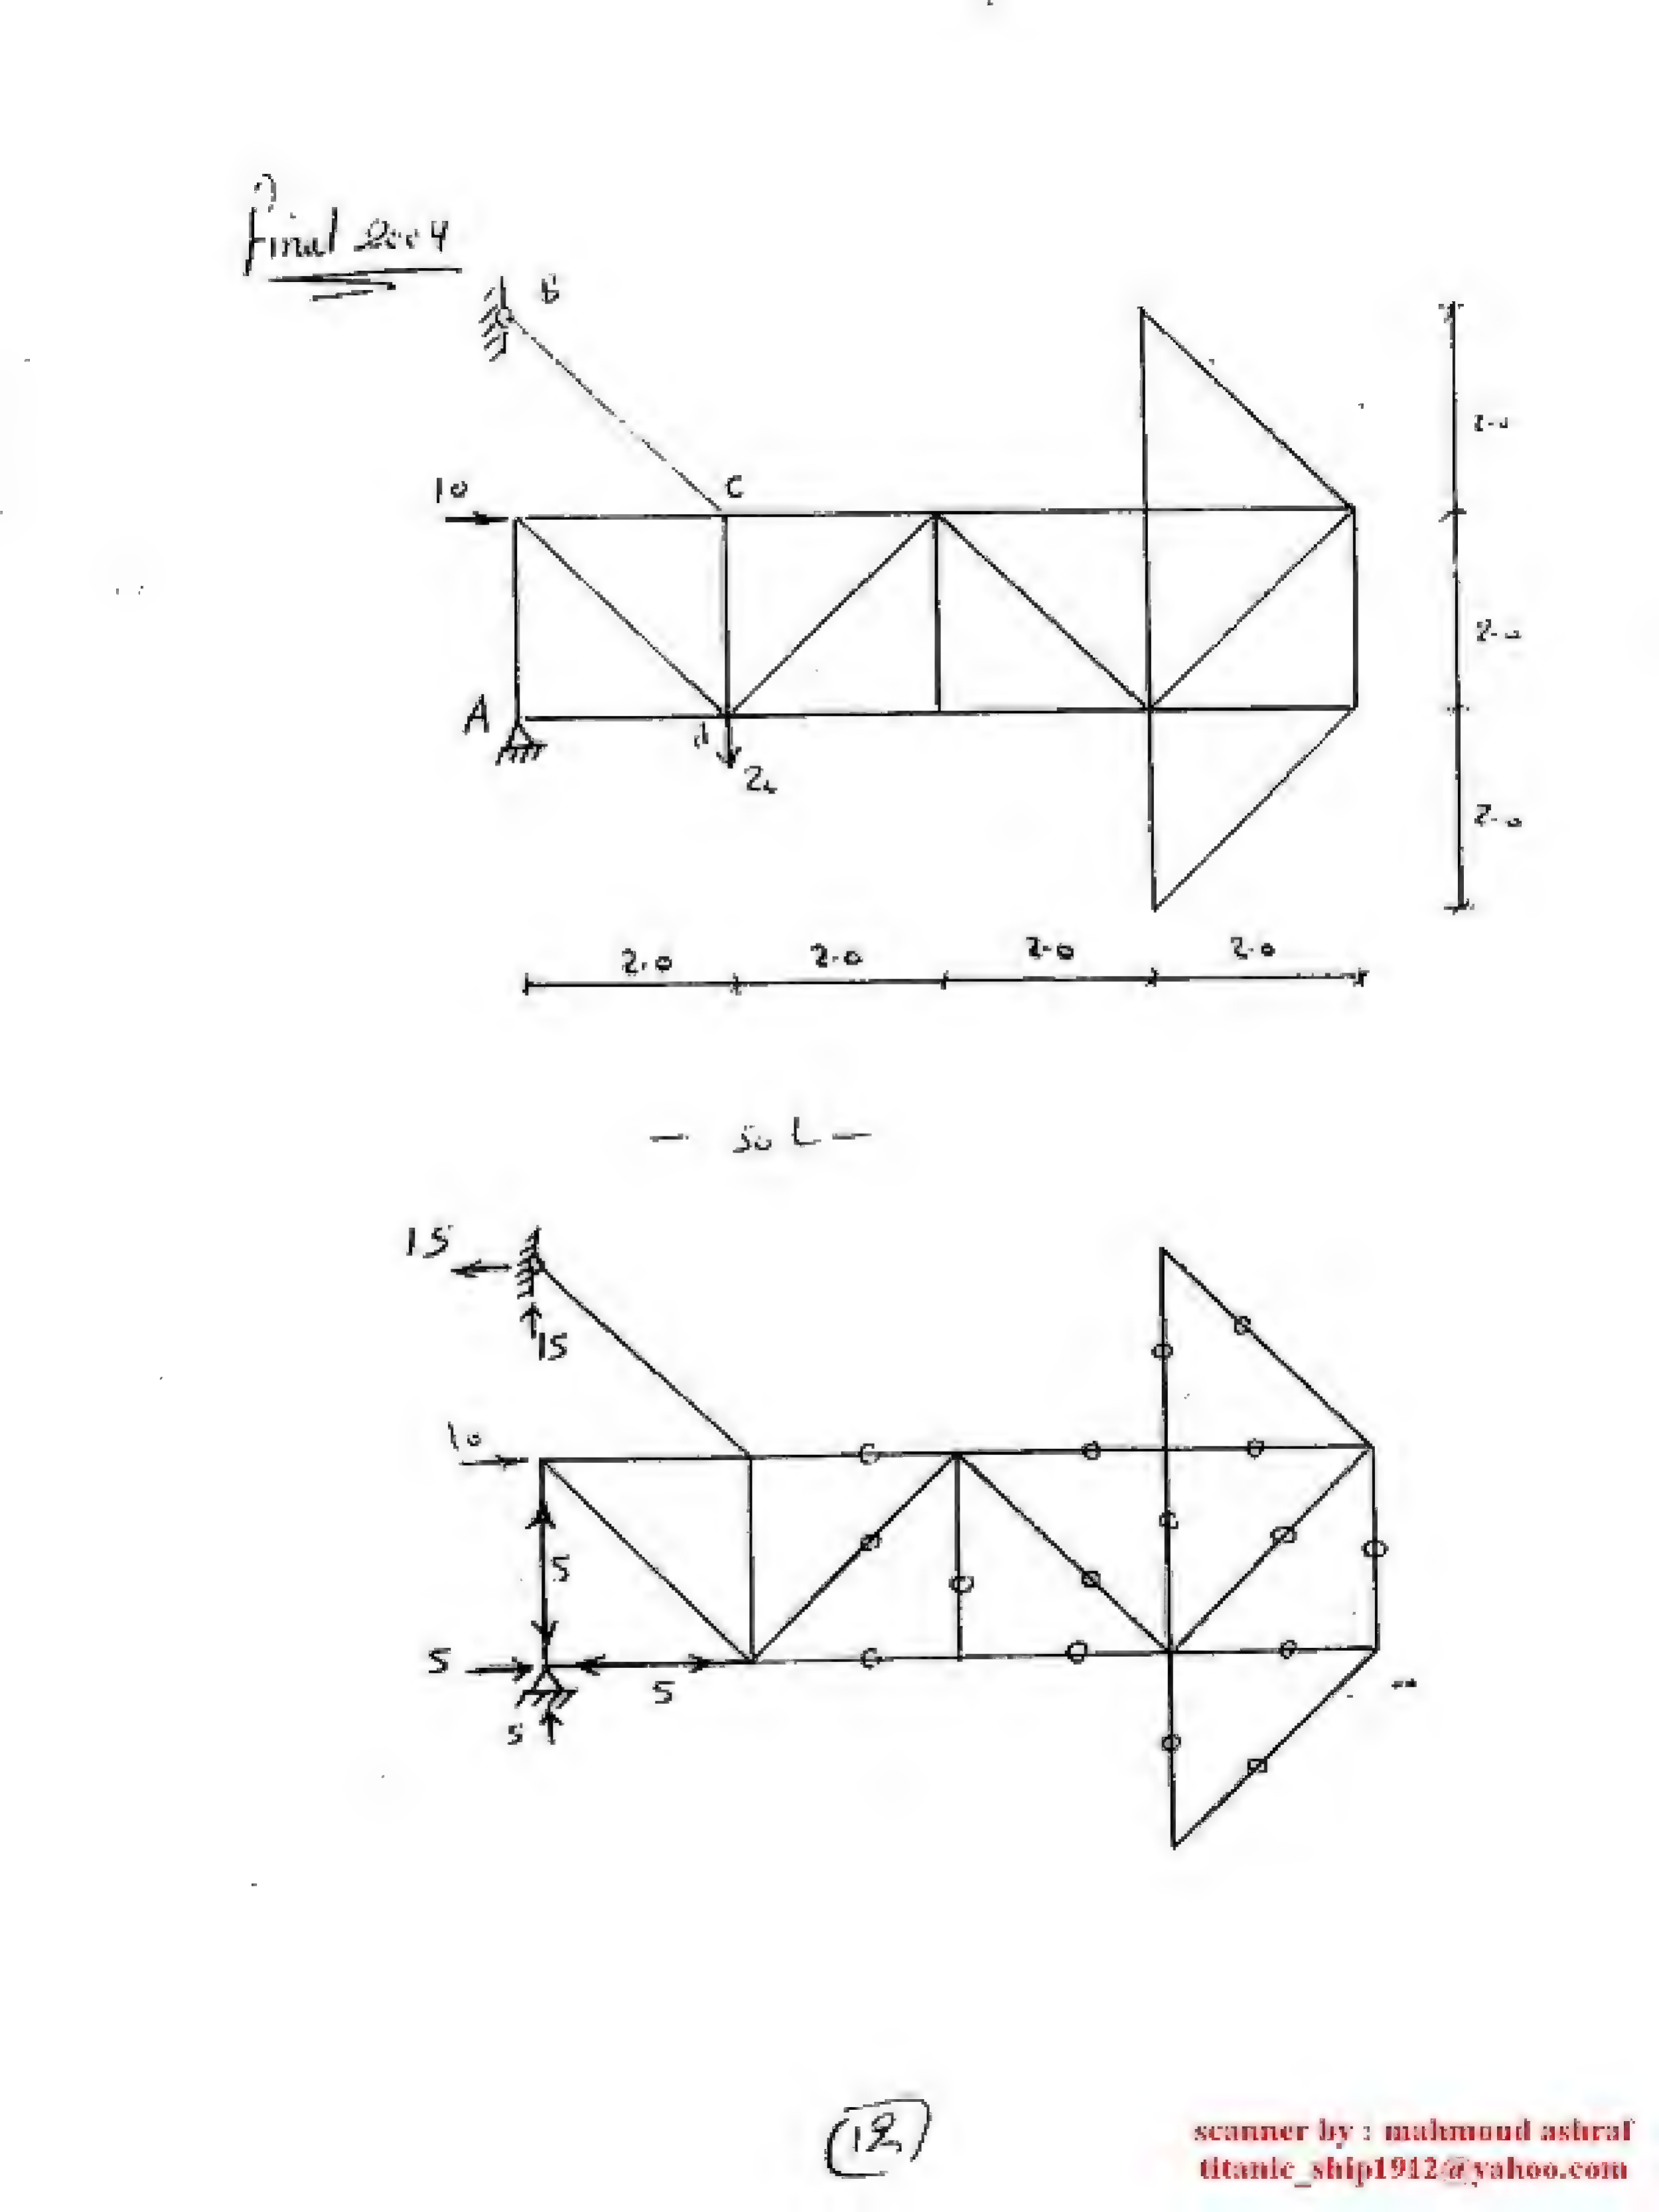 Final 2004
B
10
C
2.0
A
2.0
d
2.0
2.0 2.0 2.0 2.0
- Sol -
15
15
10
5
5
5
5
12
scanner by : mahmoud ashraf
titanic_ship1912@yahoo.com